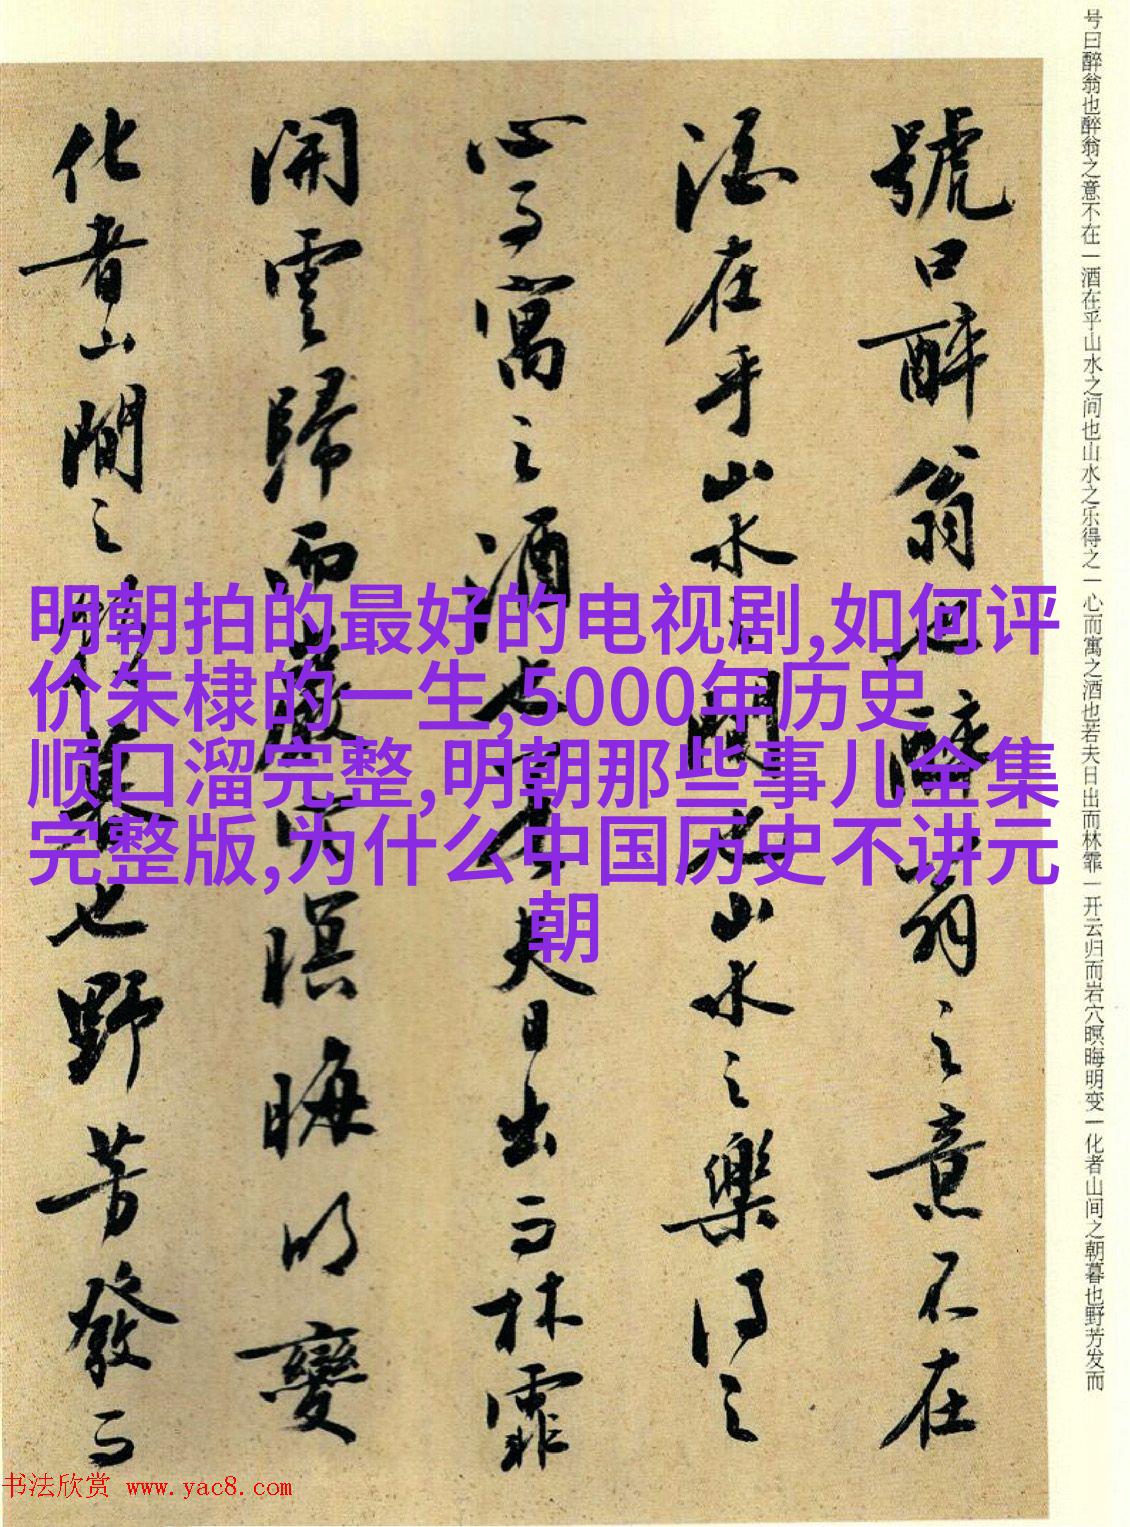 号曰醉翁也醉翁之意不在一酒在乎山水之间也山水之乐得之一心而寓之酒也若夫日出而林霏一开云归而岩穴暝晦明变一化者山间之朝暮也野芳发而
號曰醉翁也醉翁之意不在
酒在乎山水之間也山水之樂得之
心而寓之酒也若夫日出而林霏
開雲歸而巖穴暝晦明變
化者山間之朝暮也野芳發而
明朝拍的最好的电视剧,如何评
价朱棣的一生,5000年历史
顺口溜完整,明朝那些事儿全集
完整版,为什么中国历史不讲元
朝
书法欣赏 www.yac8.com